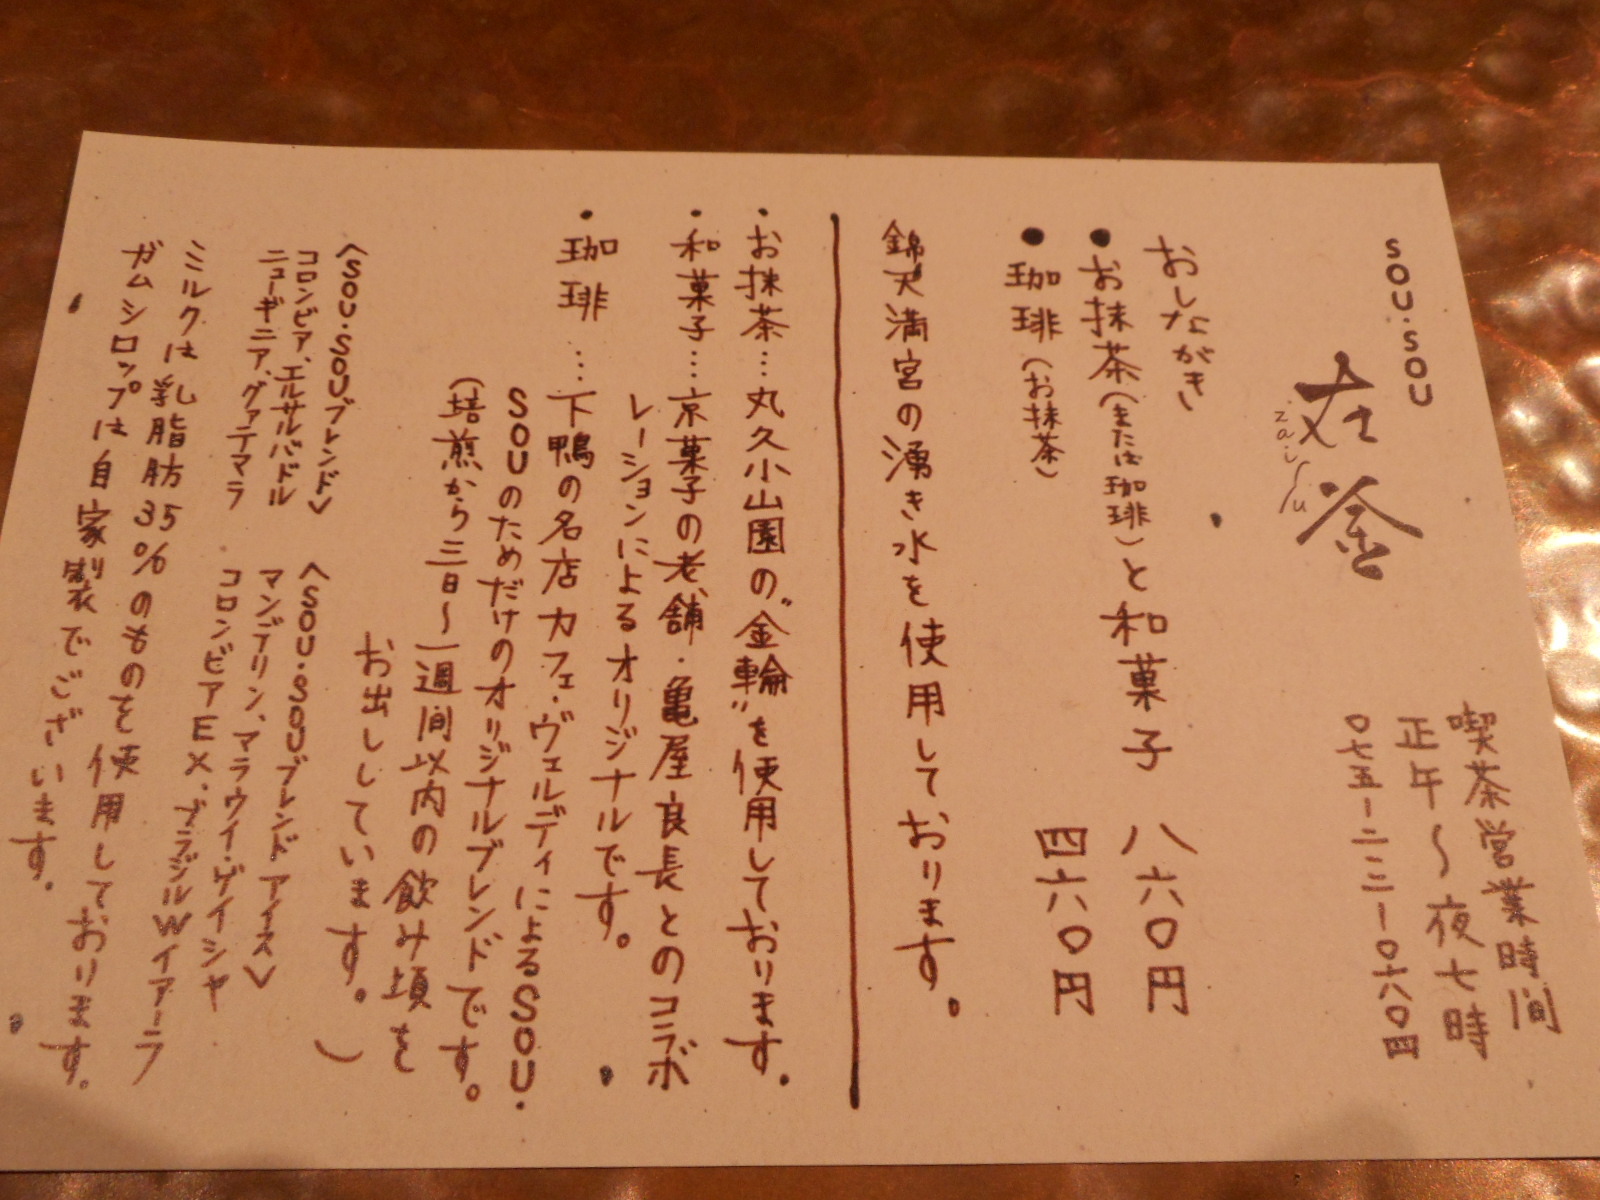 SOU・SOU
在釜
zaifu
喫茶営業時間
正午〜夜七時
〇七五ー二二一ー〇六八〇
おしながき
●お抹茶(または珈琲)と和菓子 八六〇円
●珈琲(お抹茶) 四六〇円
錦天満宮の湧き水を使用しております。
・お抹茶…丸久小山園の“金輪”を使用しております。
・和菓子…京菓子の老舗・亀屋良長とのコラボ
レーションによるオリジナルです。
・珈琲…下鴨の名店カフェ・ヴェルディによるSOU・
SOUのためだけのオリジナルブレンドです。
(培煎から三日〜一週間以内の飲み頃を
お出ししています。)
〈SOU・SOUブレンド〉
コロンビア、エルサルバドル
ニューギニア、グァテマラ
〈SOU・SOUブレンド アイス〉
マンデリン、マラウイ・ゲイシャ
コロンビアEX、ブラジルWイアーラ
ミルクは乳脂肪35%のものを使用しております。
ガムシロップは自家製でございます。